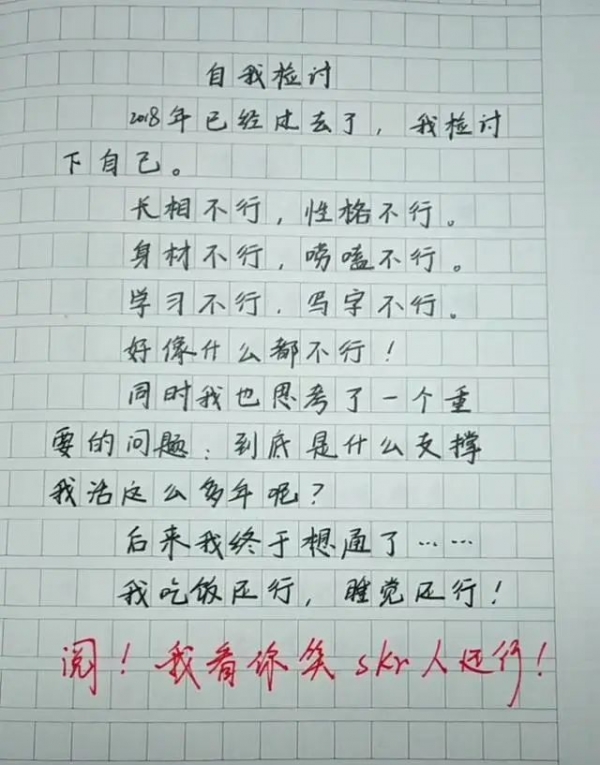 自我检讨
2018年已经过去了，我检讨
下自己。
长相不行，性格不行。
身材不行，唠嗑不行。
学习不行，写字不行。
好像什么都不行！
同时我也思考了一个重
要的问题：到底是什么支撑
我活这么多年呢？
后来我终于想通了……
我吃饭还行，睡觉还行！
阅！我看你笑skr人还行！